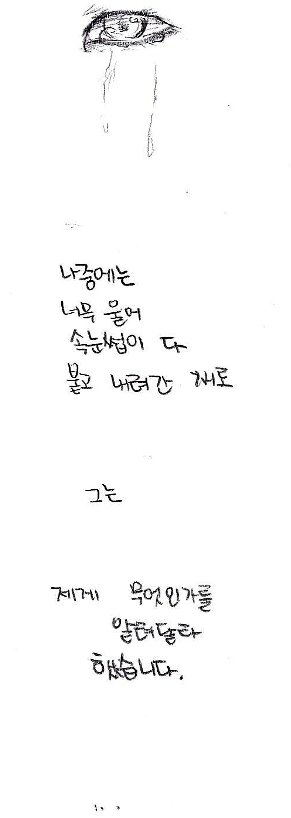 나중에는
너무 울어
속눈썹이 다
붙고 내려간 채로
그는
제게 무엇인가를
알려달라
했습니다.